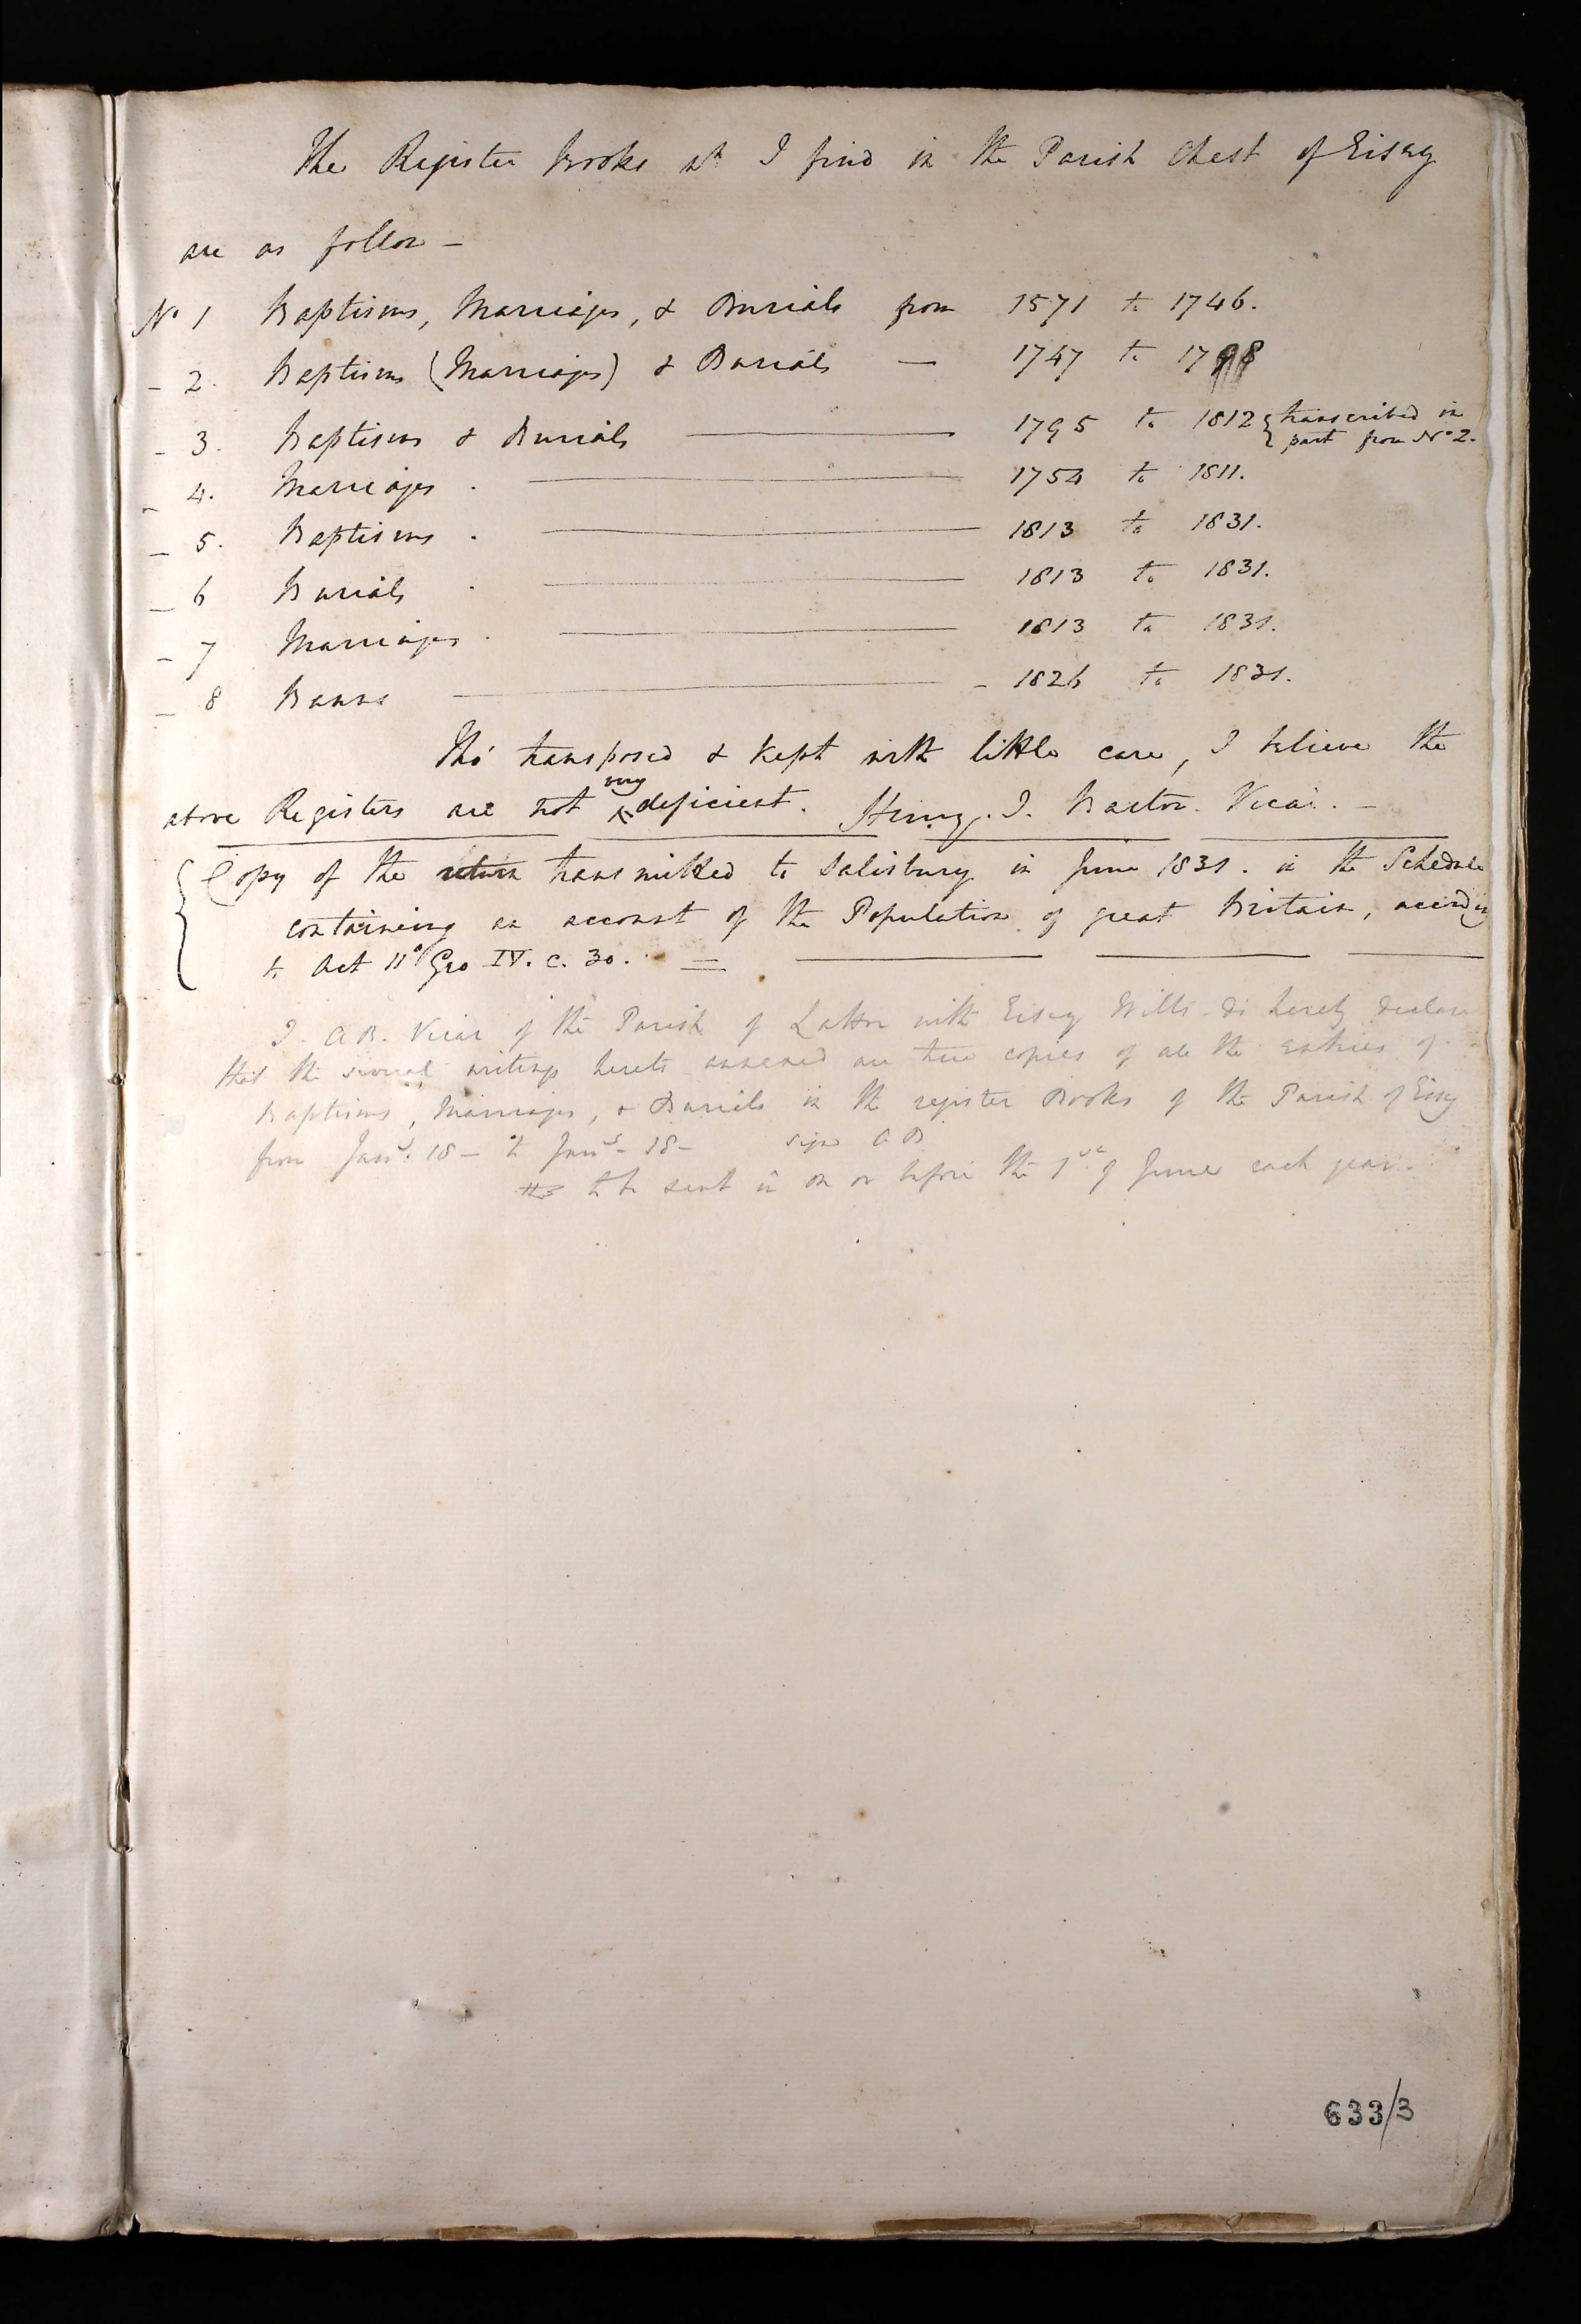 The Register Books wh I find in the Parish Chest of Eisey
are as follow –
No 1 Baptisms, Marriages, & Burials from 1571 to 1746.
– 2. Baptisms (Marriages) & Burials — 1747 to 1798
– 3. Baptisms & Burials — 1795 to 1812 { transcribed in
part from No 2.
– 4. Marriages . — 1754 to 1811.
– 5. Baptisms . — 1813 to 1831.
– 6 Burials . — 1813 to 1831.
– 7 Marriages . — 1813 to 1831.
– 8 Banns — 1826 to 1831.
Tho' transposed & kept with little care, I believe the
above Registers are not very deficient. Henry. I. Barton. Vicar. –
Copy of the return transmitted to Salisbury in June 1831. in the Schedule
containing an account of the Population of great Britain, according
to Act 11o Geo IV. c. 30. —
I. A B. Vicar of the Parish of Latton with Eisey Wilts do hereby declare
that the several writings hereto annexed are true copies of all the entries of
Baptisms, Marriages, & Burials in the register Books of the Parish of Eisey
from 18 – to 18 – sign A B
to be sent in on or before the 1st of June each year.
633/3